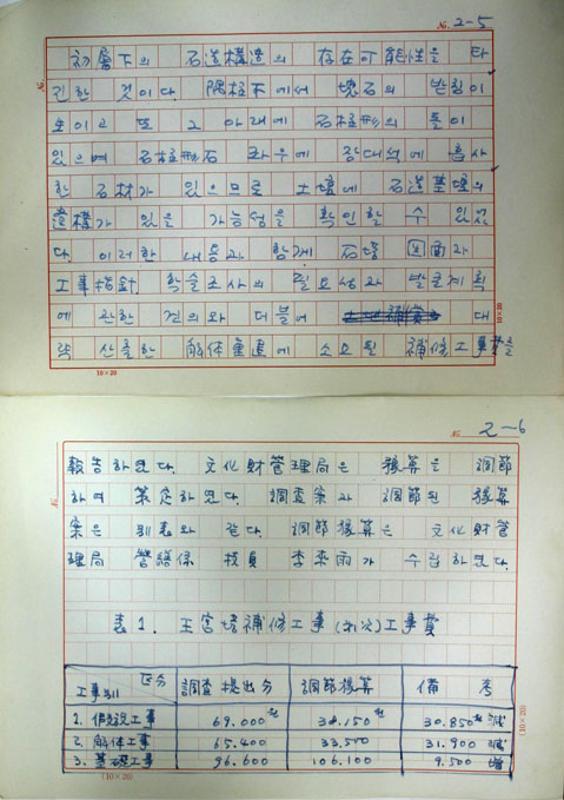 No. 2-5
初層下의 石造構造의 存在可能性을 타
진한 것이다. 隅柱下에서 塊石의 받침이
보이고 또 그 아래에 石柱形의 돌이
있으며 石柱形石 좌우에 장대석에 흡사
한 石材가 있으므로 土壇에 石造基壇의
遺構가 있을 가능성을 확인할 수 있었
다. 이러한 내용과 함께 石塔 図面과
工事指針 학술조사의 필요성과 발굴계획
에 관한 건의와 더불어 대
략 산출한 解体重建에 소요될 補修工事費를
10×20
10×20
No. 2-6
報告하였다. 文化財管理局은 豫算을 調節
하여 策定하였다. 調査案과 調節된 豫算
案은 別表와 같다. 調節豫算은 文化財管
理局 營繕係 技員 李來雨가 수립하였다.
表1. 王宮塔補修工事(初次)工事費
工事別 区分 調査提出分 調節豫算 備考
1. 假設工事 69.000원 38.150원 30.850원 減
2. 解体工事 65.400 33.500 31.900 減
3. 基礎工事 96.600 106.100 9.500 增
(10×20)
(10×20)